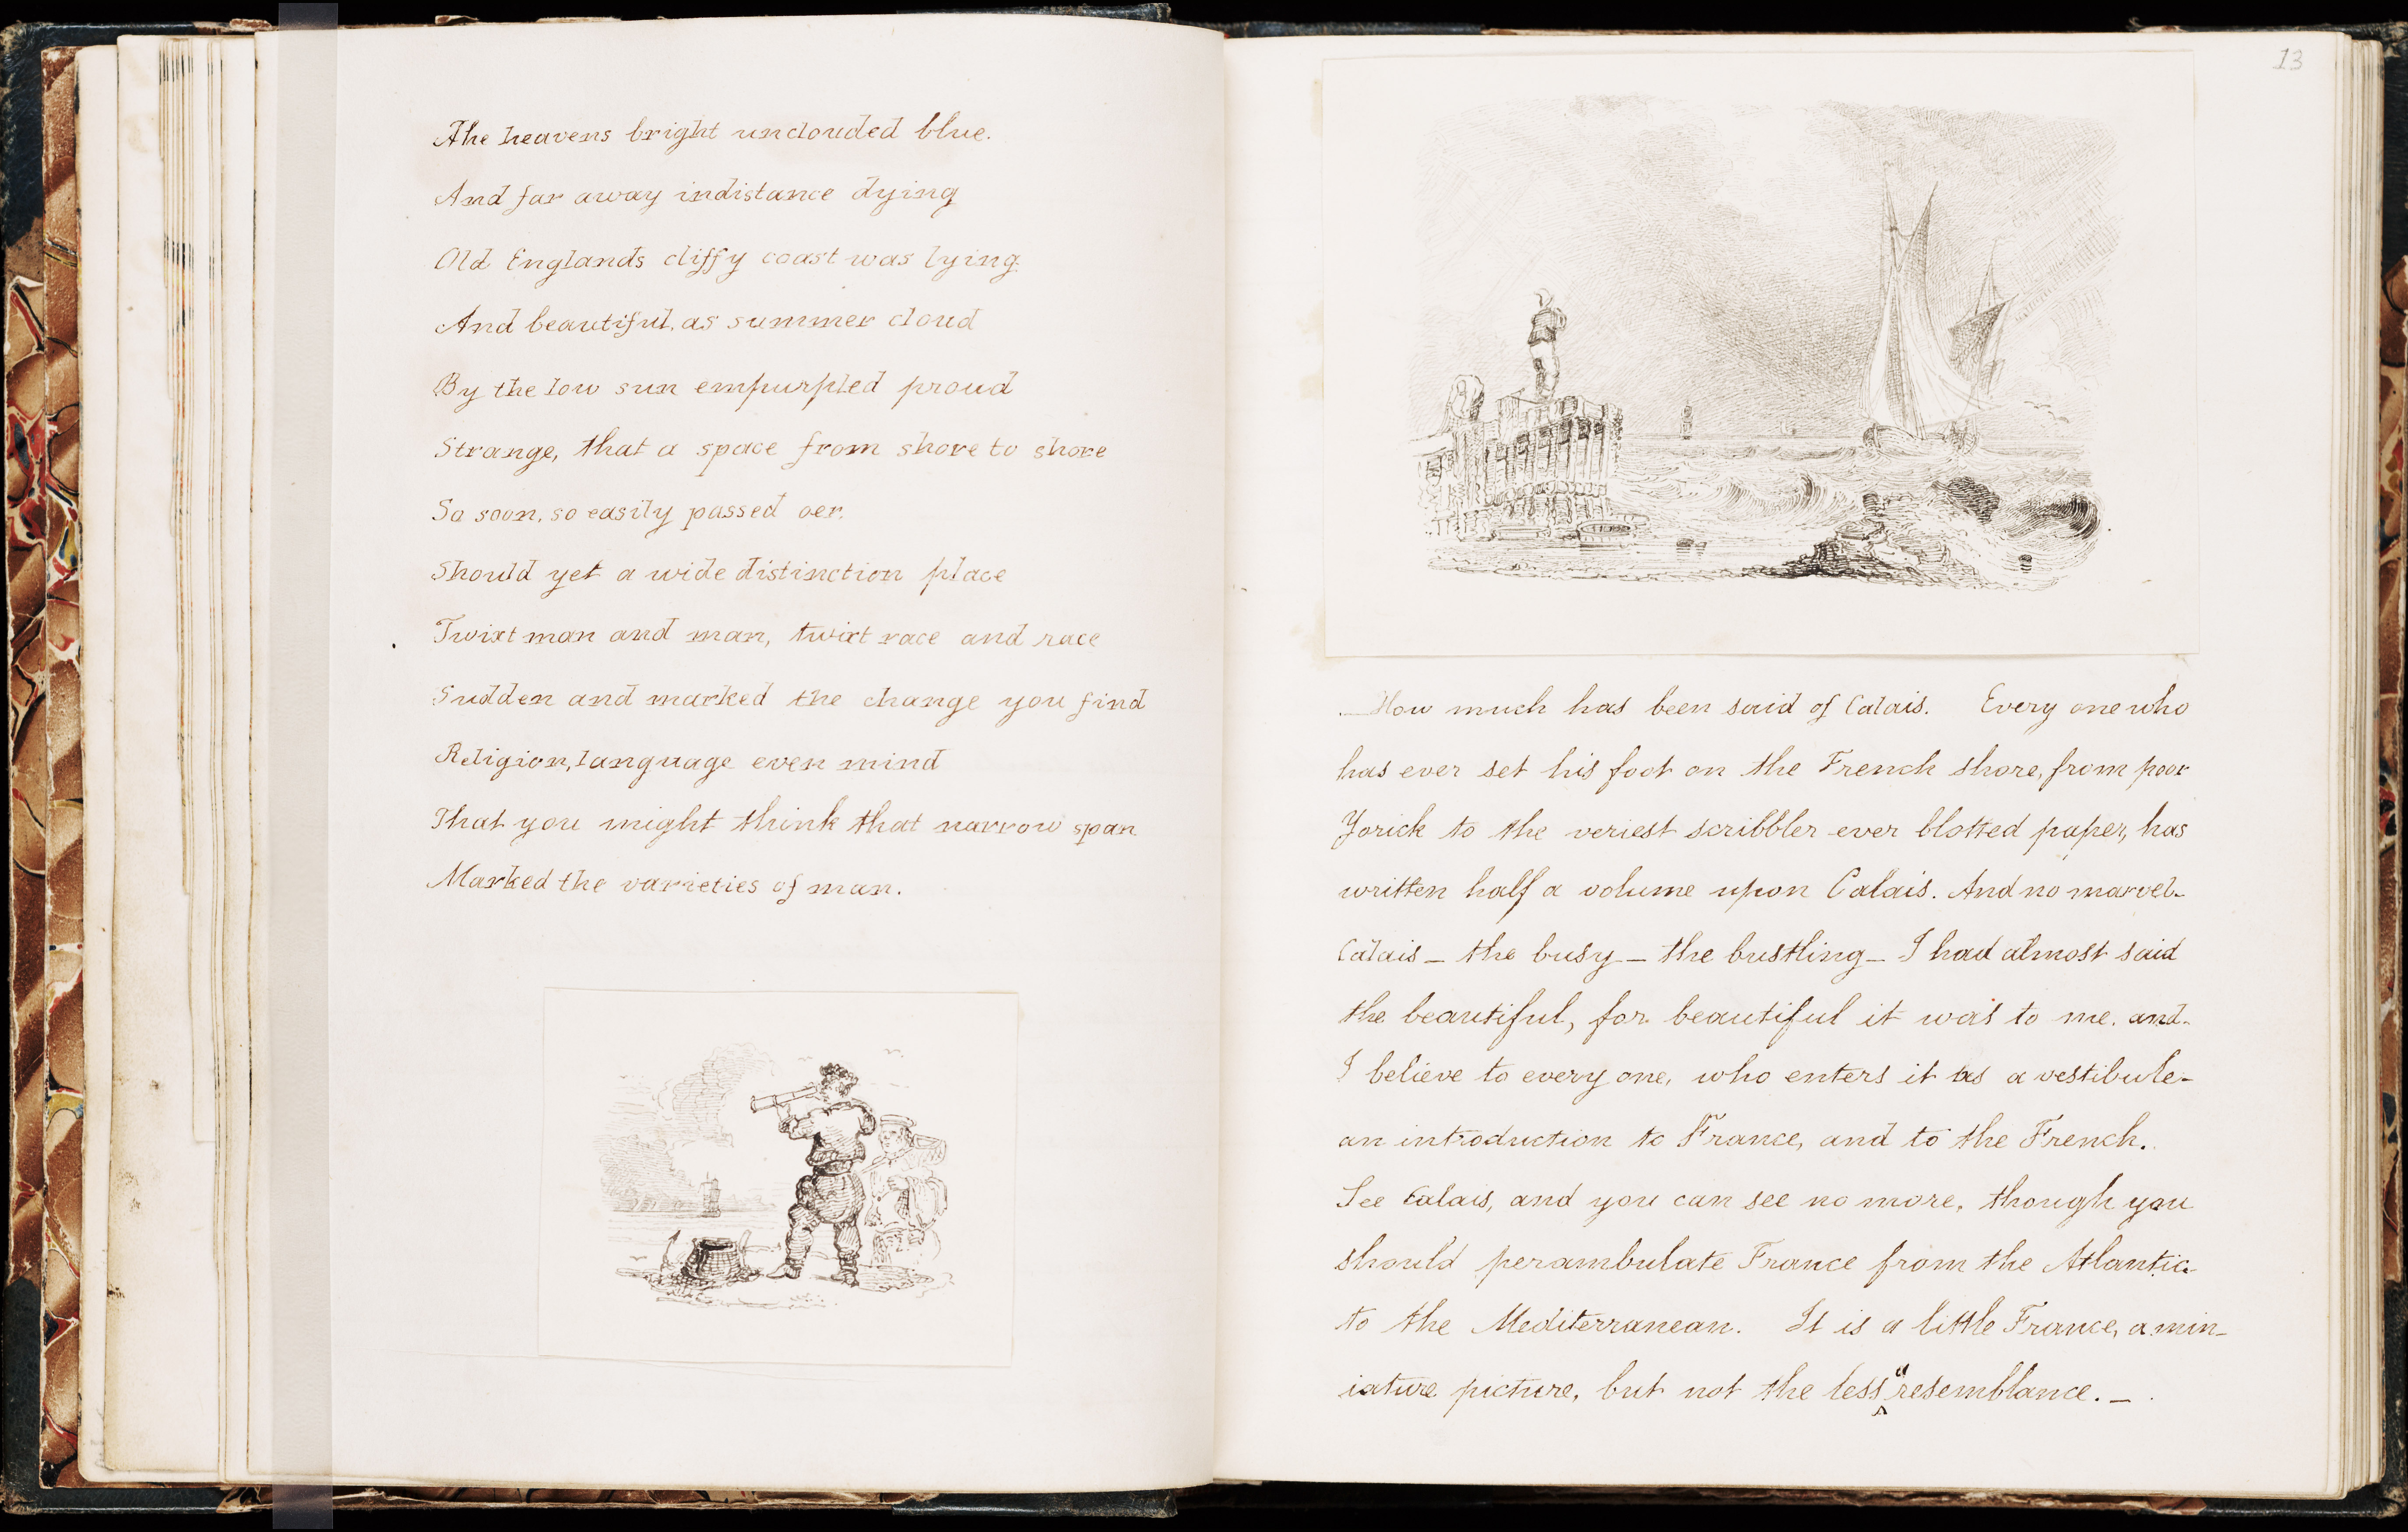 The heavens bright unclouded blue.
And far away indistance dying
Old Englands cliffy coast was lying.
And beautiful, as summer cloud
By the low sun empurpled proud
Strange, that a space from shore to shore
So soon, so easily passed oer.
Should yet a wide distinction place
Twixt man and man, twixt race and race
Sudden and marked the change you find
Religion, language even mind
That you might think that narrow span
Marked the varieties of man.
13
How much has been said of Calais. Every one who
has ever set his foot on the French shore, from poor
Yorick to the veriest scribbler ever blotted paper, has
written half a volume upon Calais. And no marvel-
Calais – the busy – the bustling – I had almost said
the beautiful, for beautiful it was to me. and-
I believe to every one, who enters it as a vestibule-
an introduction to France, and to the French.
See Calais, and you can see no more, though you
should perambulate France from the Atlantic
to the Mediterranean. It is a little France, a min-
iature picture, but not the less a resemblance. –